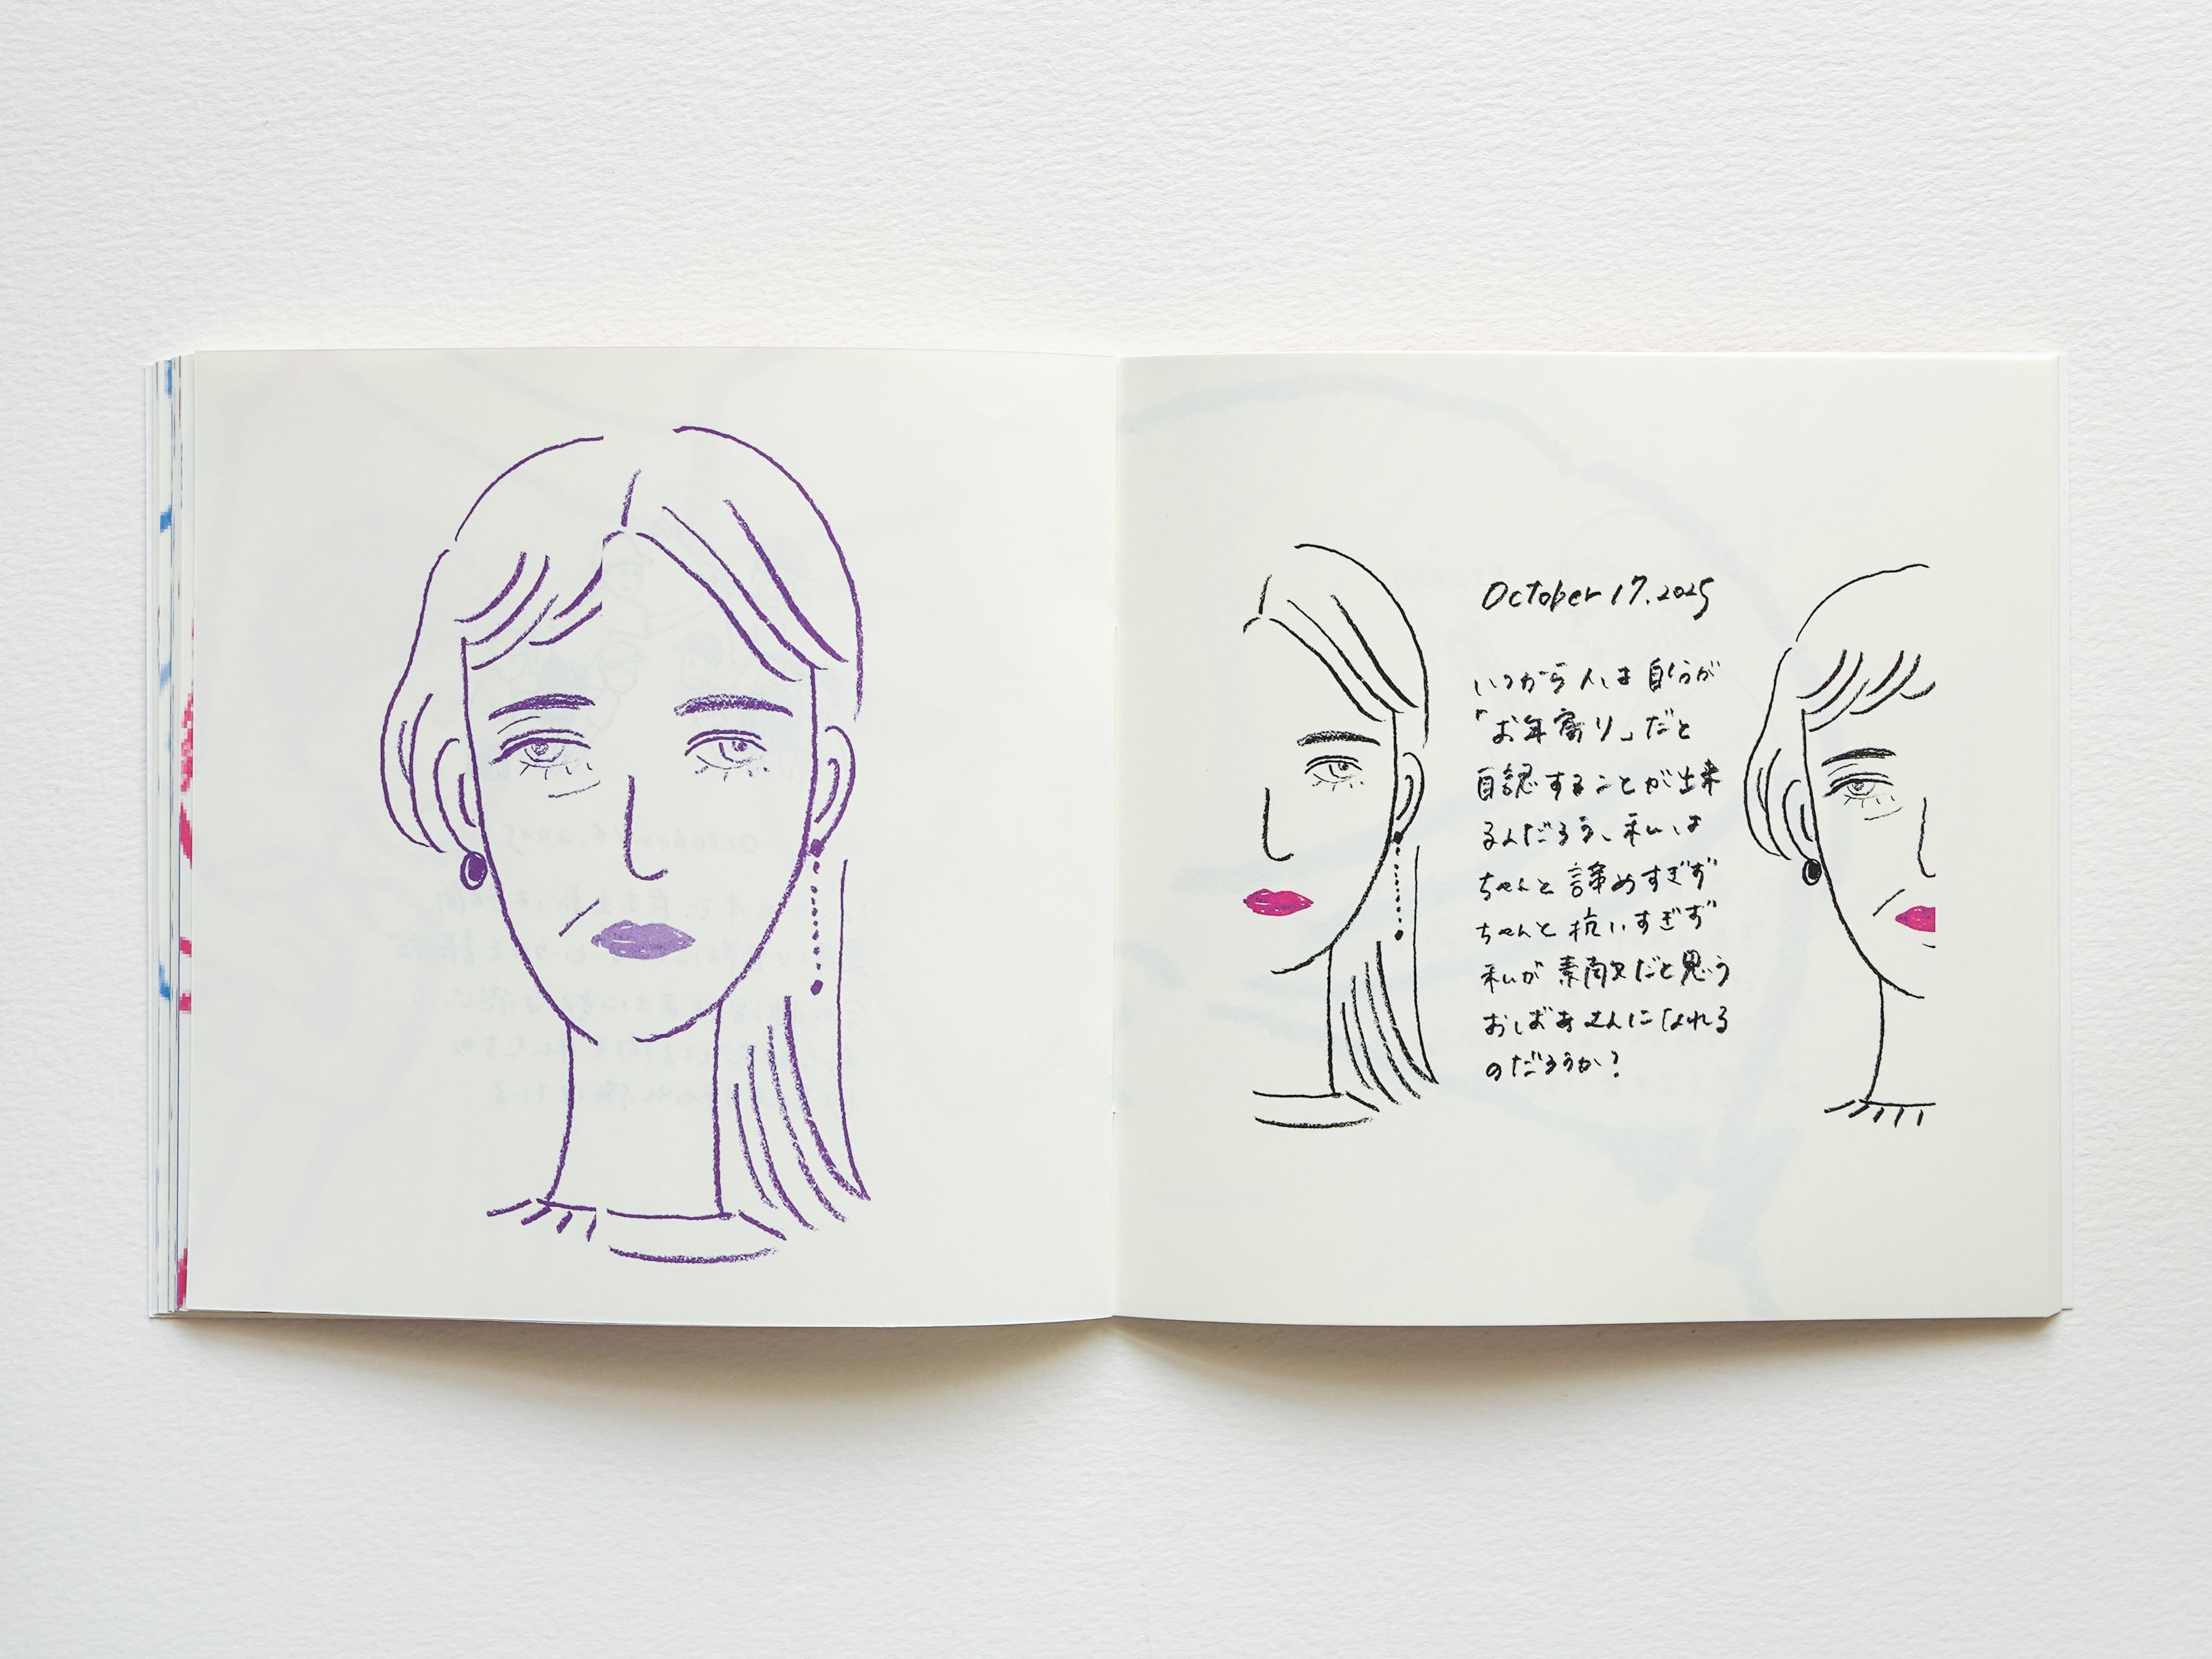 October 17.2025
いつから人は自分が
「お年寄り」だと
自認することが出来
るんだろう、私は
ちゃんと諦めすぎず
ちゃんと抗いすぎず
私が素敵だと思う
おばあさんになれる
のだろうか?